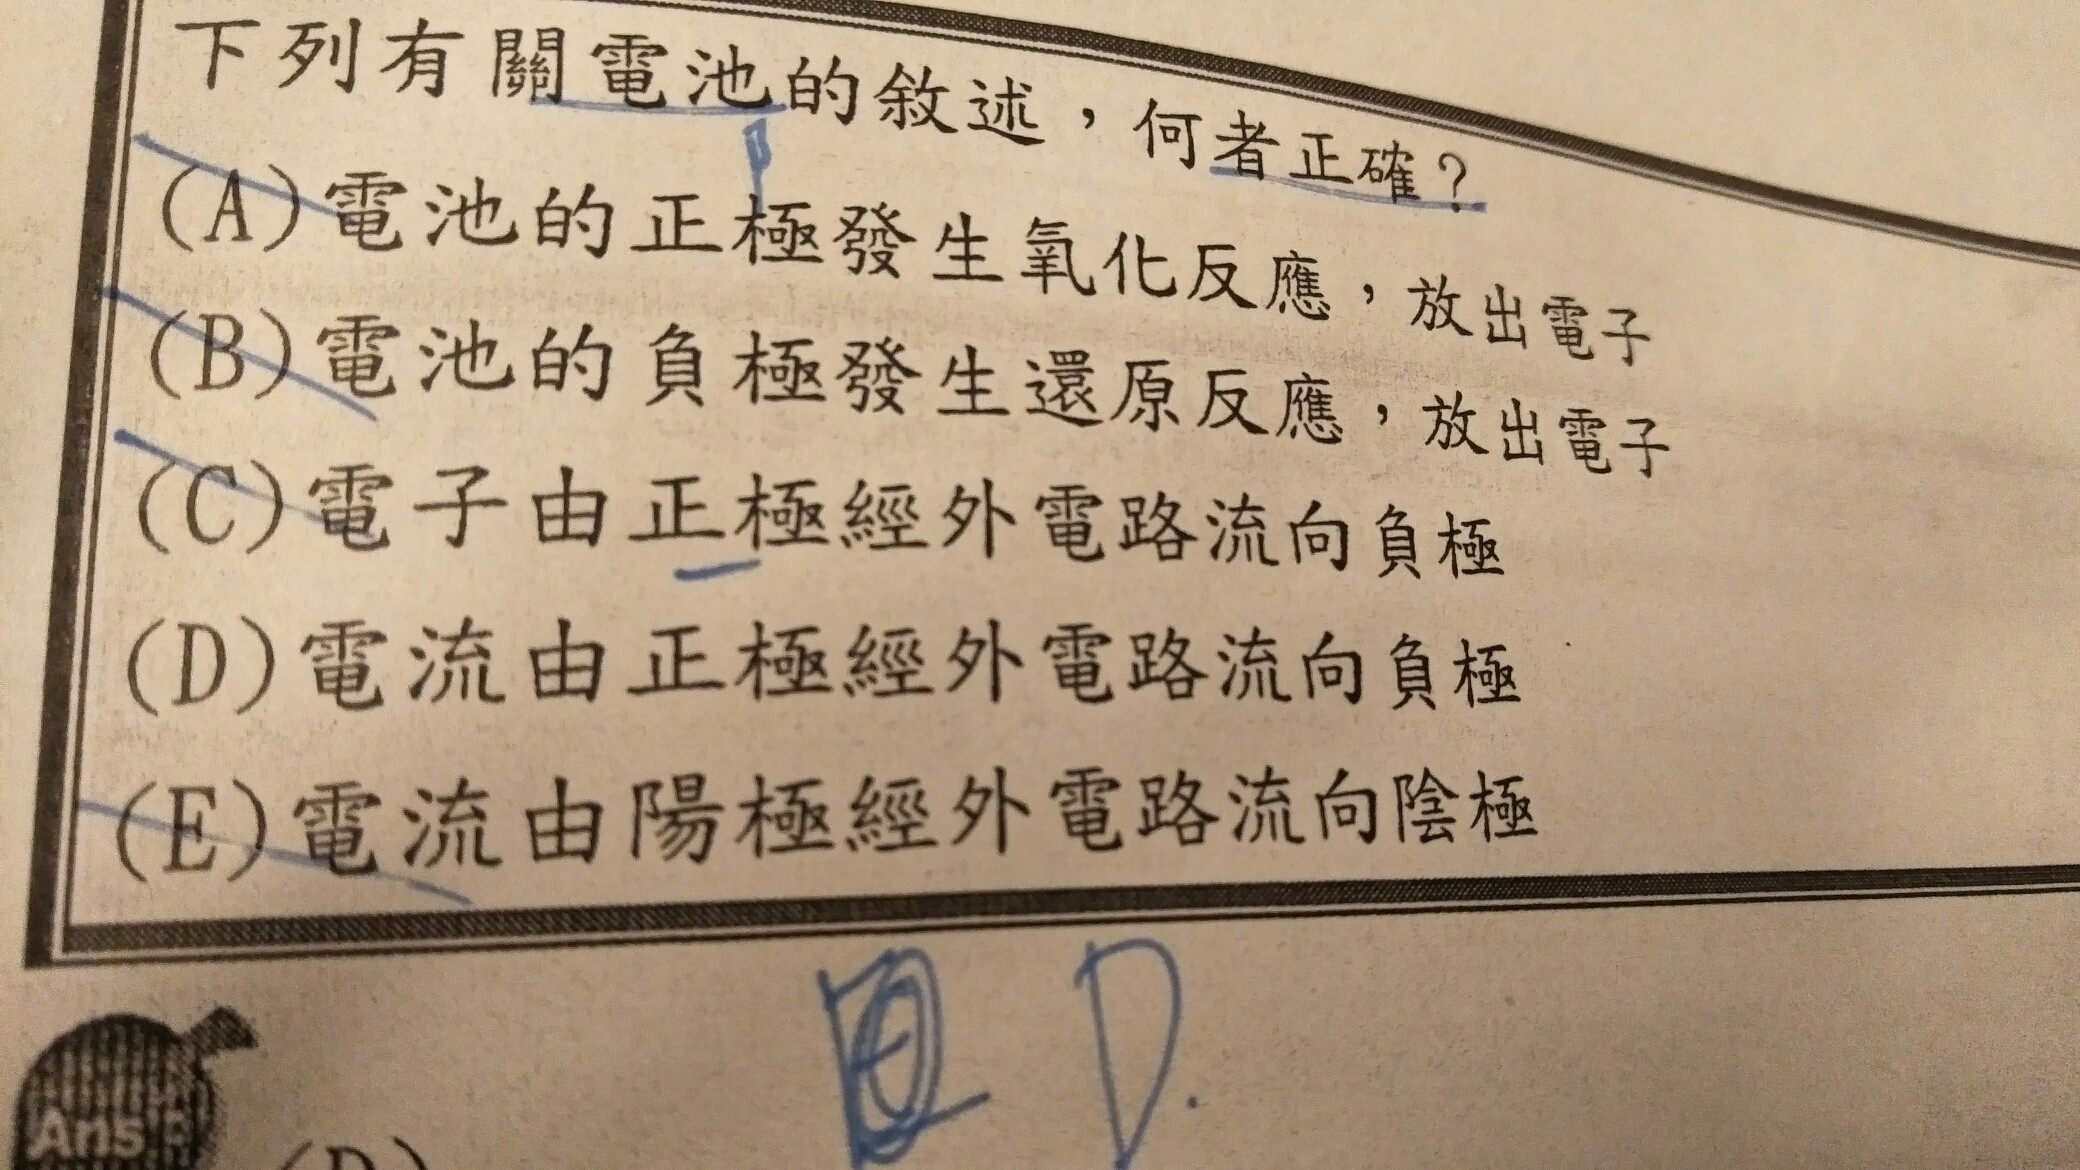 下列有關電池的敘述，何者正確？
(A)電池的正極發生氧化反應，放出電子
(B)電池的負極發生還原反應，放出電子
(C)電子由正極經外電路流向負極
(D)電流由正極經外電路流向負極
(E)電流由陽極經外電路流向陰極
D.
Ans